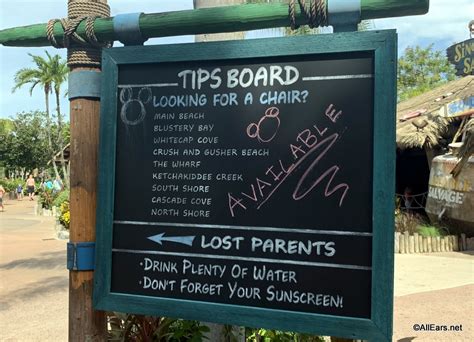 TIPS BOARD
LOOKING FOR A CHAIR?
MAIN BEACH
BLUSTERY BAY
WHITECAP COVE
CRUSH AND GUSHER BEACH
THE WHARF
KETCHAKIDDEE CREEK
SOUTH SHORE
CASCADE COVE
NORTH SHORE
AVAILABLE
LOST PARENTS
·DRINK PLENTY OF WATER
·DON'T FORGET YOUR SUNSCREEN!
SALVAGE
©AllEars.net